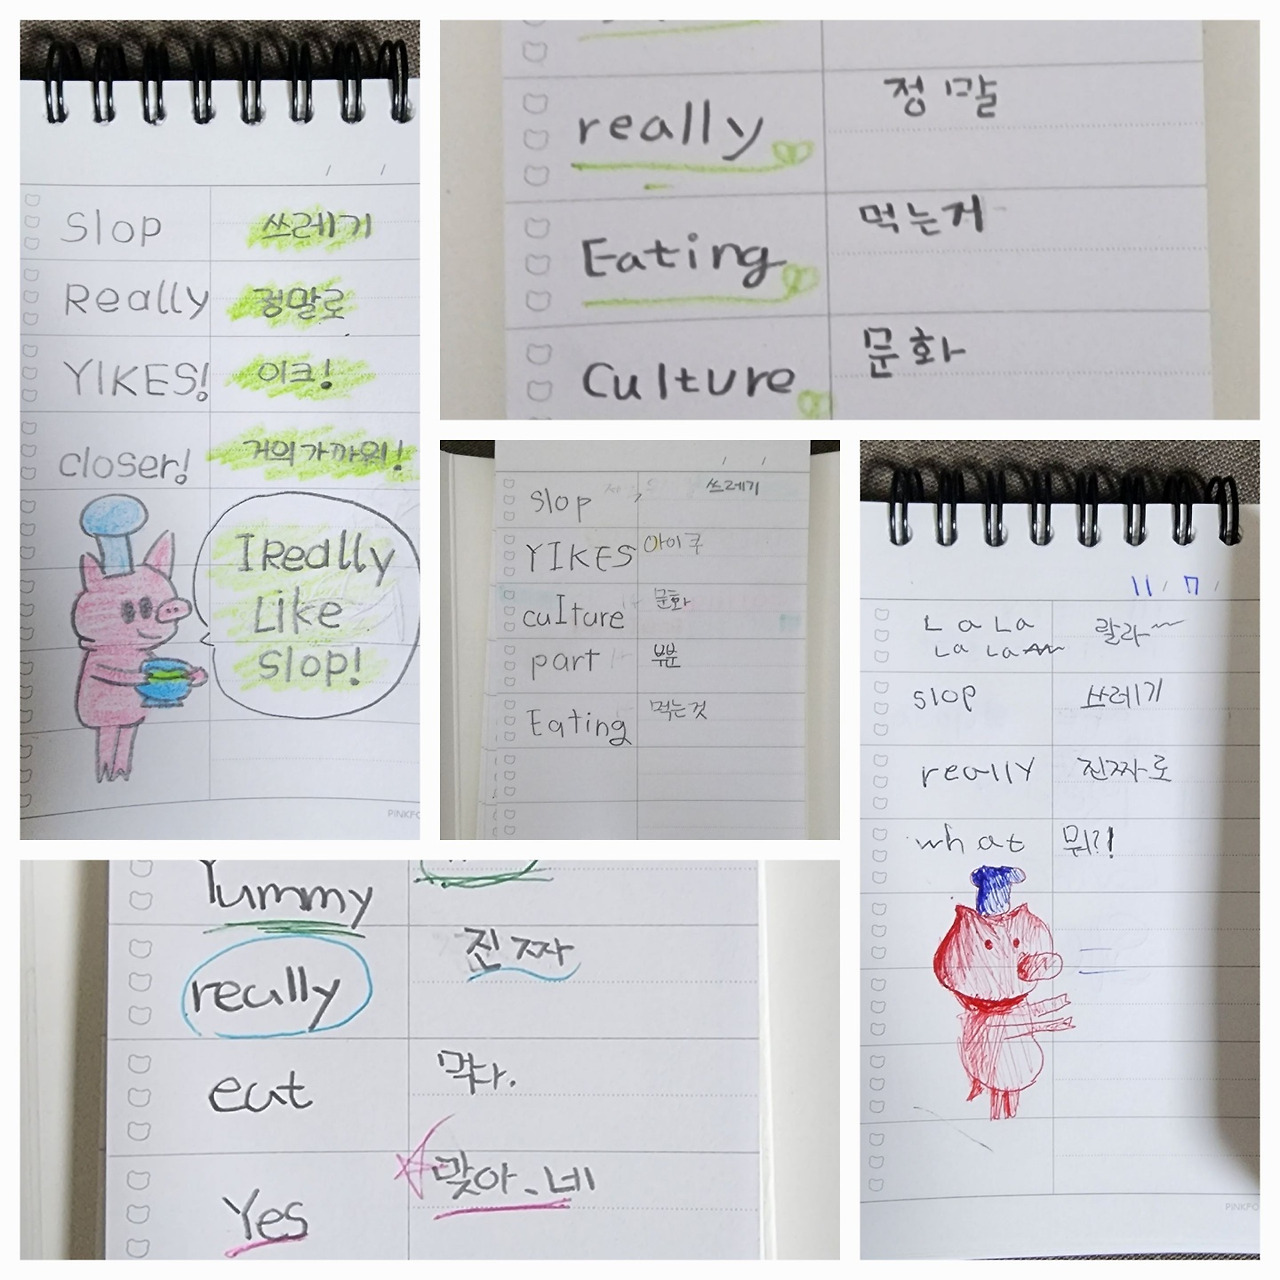 Slop 쓰레기
Really 정말로
YIKES! 이크!
closer! 거의가까워!
I Really
Like
Slop!
PINKFO
really 정말
Eating 먹는거
Culture 문화
slop 쓰레기
YIKES 아이쿠
culture 문화
part 부분
Eating 먹는것
11 / 7 /
LaLa 랄라~
LaLa
slop 쓰레기
really 진짜로
what 뭐?!
PINKFO
Yummy
really 진짜
eat 먹다.
Yes 맞아、네